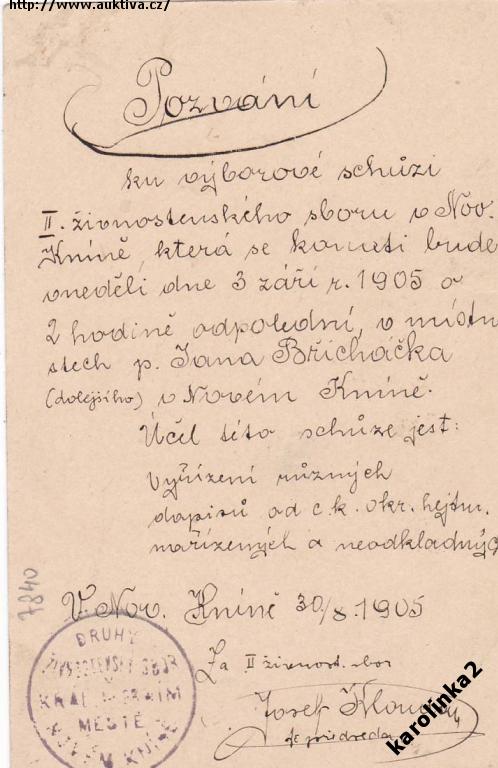 http://www.auktiva.cz/
Pozvání
ku výborové schůzi
II. živnostenského sboru v Nov.
Kníně, která se konati bude
v neděli dne 3 září r. 1905 o
2 hodině odpolední, v místno
stech p. Jana Břicháčka
(dolejšího) v Novém Kníně.
Účel této schůze jest:
Vyřízení různých
dopisů od c. k. okr. hejtm.
nařízených a neodkladných
V. Nov. Kníně 30/8. 1905
Za II živnost. sbor
Josef
předseda
7840
DRUHÝ
ŽIVNOSTENSKÝ SBOR
MĚSTĚ
NOVÉM KNÍNĚ
karolinka2